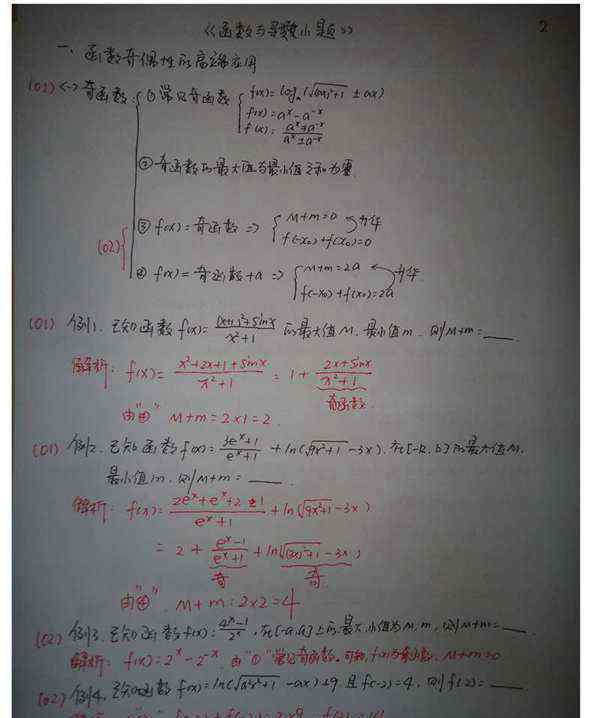 《函数与导数小题》 2
一、函数奇偶性的高端应用
(01) <一> 奇函数: ① 常见奇函数 f(x)=logₐ(√(ax)²+1 ± ax)
f(x)=aˣ-a⁻ˣ
f(x)=
② 奇函数的最大值与最小值之和为零.
(02) ③ f(x)=奇函数 => M+m=0 升华
f(-x₀)+f(x₀)=0
④ f(x)=奇函数+a => M+m=2a 升华
f(-x₀)+f(x₀)=2a
(01) 例1. 已知函数 f(x)=((x+1)²+sinx)/(x²+1) 的最大值M, 最小值m, 则M+m=____
解析: f(x)=(x²+2x+1+sinx)/(x²+1) = 1+(2x+sinx)/(x²+1)
奇函数
由"④" M+m=2×1=2.
(01) 例2. 已知函数 f(x)=(3eˣ+1)/(eˣ+1) +ln(√9x²+1 -3x). 在[-k, k]的最大值M,
最小值m, 则M+m=____.
解析: f(x)=(2eˣ+eˣ+2-1)/(eˣ+1) +ln(√9x²+1 -3x)
= 2+(eˣ-1)/(eˣ+1) +ln(√(3x)²+1 -3x)
奇 奇
由"④". M+m=2×2=4
(02) 例3. 已知函数 f(x)=(4ˣ-1)/2ˣ, 在[-a,a]上的最大,小值为M,m, 则M+m=____.
解析: f(x)=2ˣ-2⁻ˣ. 由"①"常见奇函数, 可知, f(x)为奇函数, M+m=0
(02) 例4. 已知函数 f(x)=ln(√a²x²+1 -ax)+9, 且f(-2)=4, 则f(2)=____.